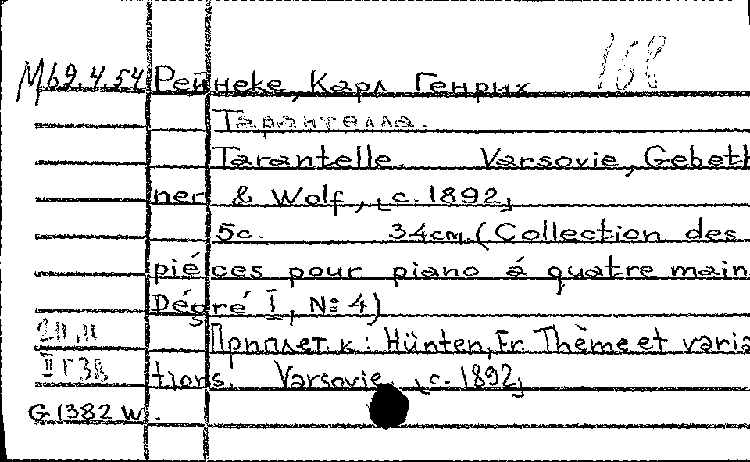 168
М69.4.54 Рейнеке, Карл Генрих
Тарантелла.
Tarantelle. Varsovie, Gebeth
ner & Wolf, [c. 1892]
5c. 34cm. (Collection des
piéces pour piano á quatre main
Dégré I, №4)
2п.л Приплет. к: Hünten, Fr. Thème et varia
II г 3в tions. Varsovie, [c. 1892]
G.1382 W.